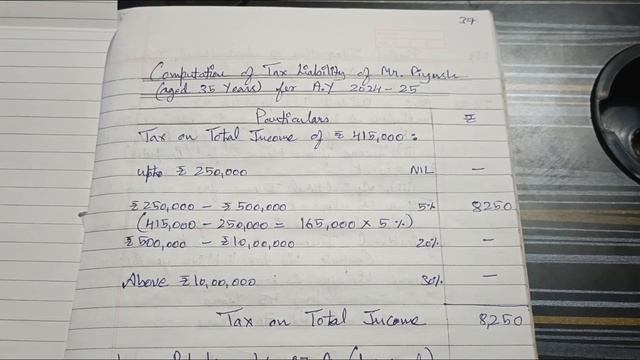 37
Computation of Tax Liability of Mr. Piyush
(aged 35 Years) for A.Y 2024-25
Particulars ₹
Tax on Total Income of ₹ 415,000 :
upto ₹ 250,000 NIL —
₹ 250,000 - ₹ 500,000 5% 8250
(415,000 - 250,000 = 165,000 × 5%)
₹ 500,000 - ₹ 10,00,000 20% —
Above ₹ 10,00,000 30% —
Tax on Total Income 8,250